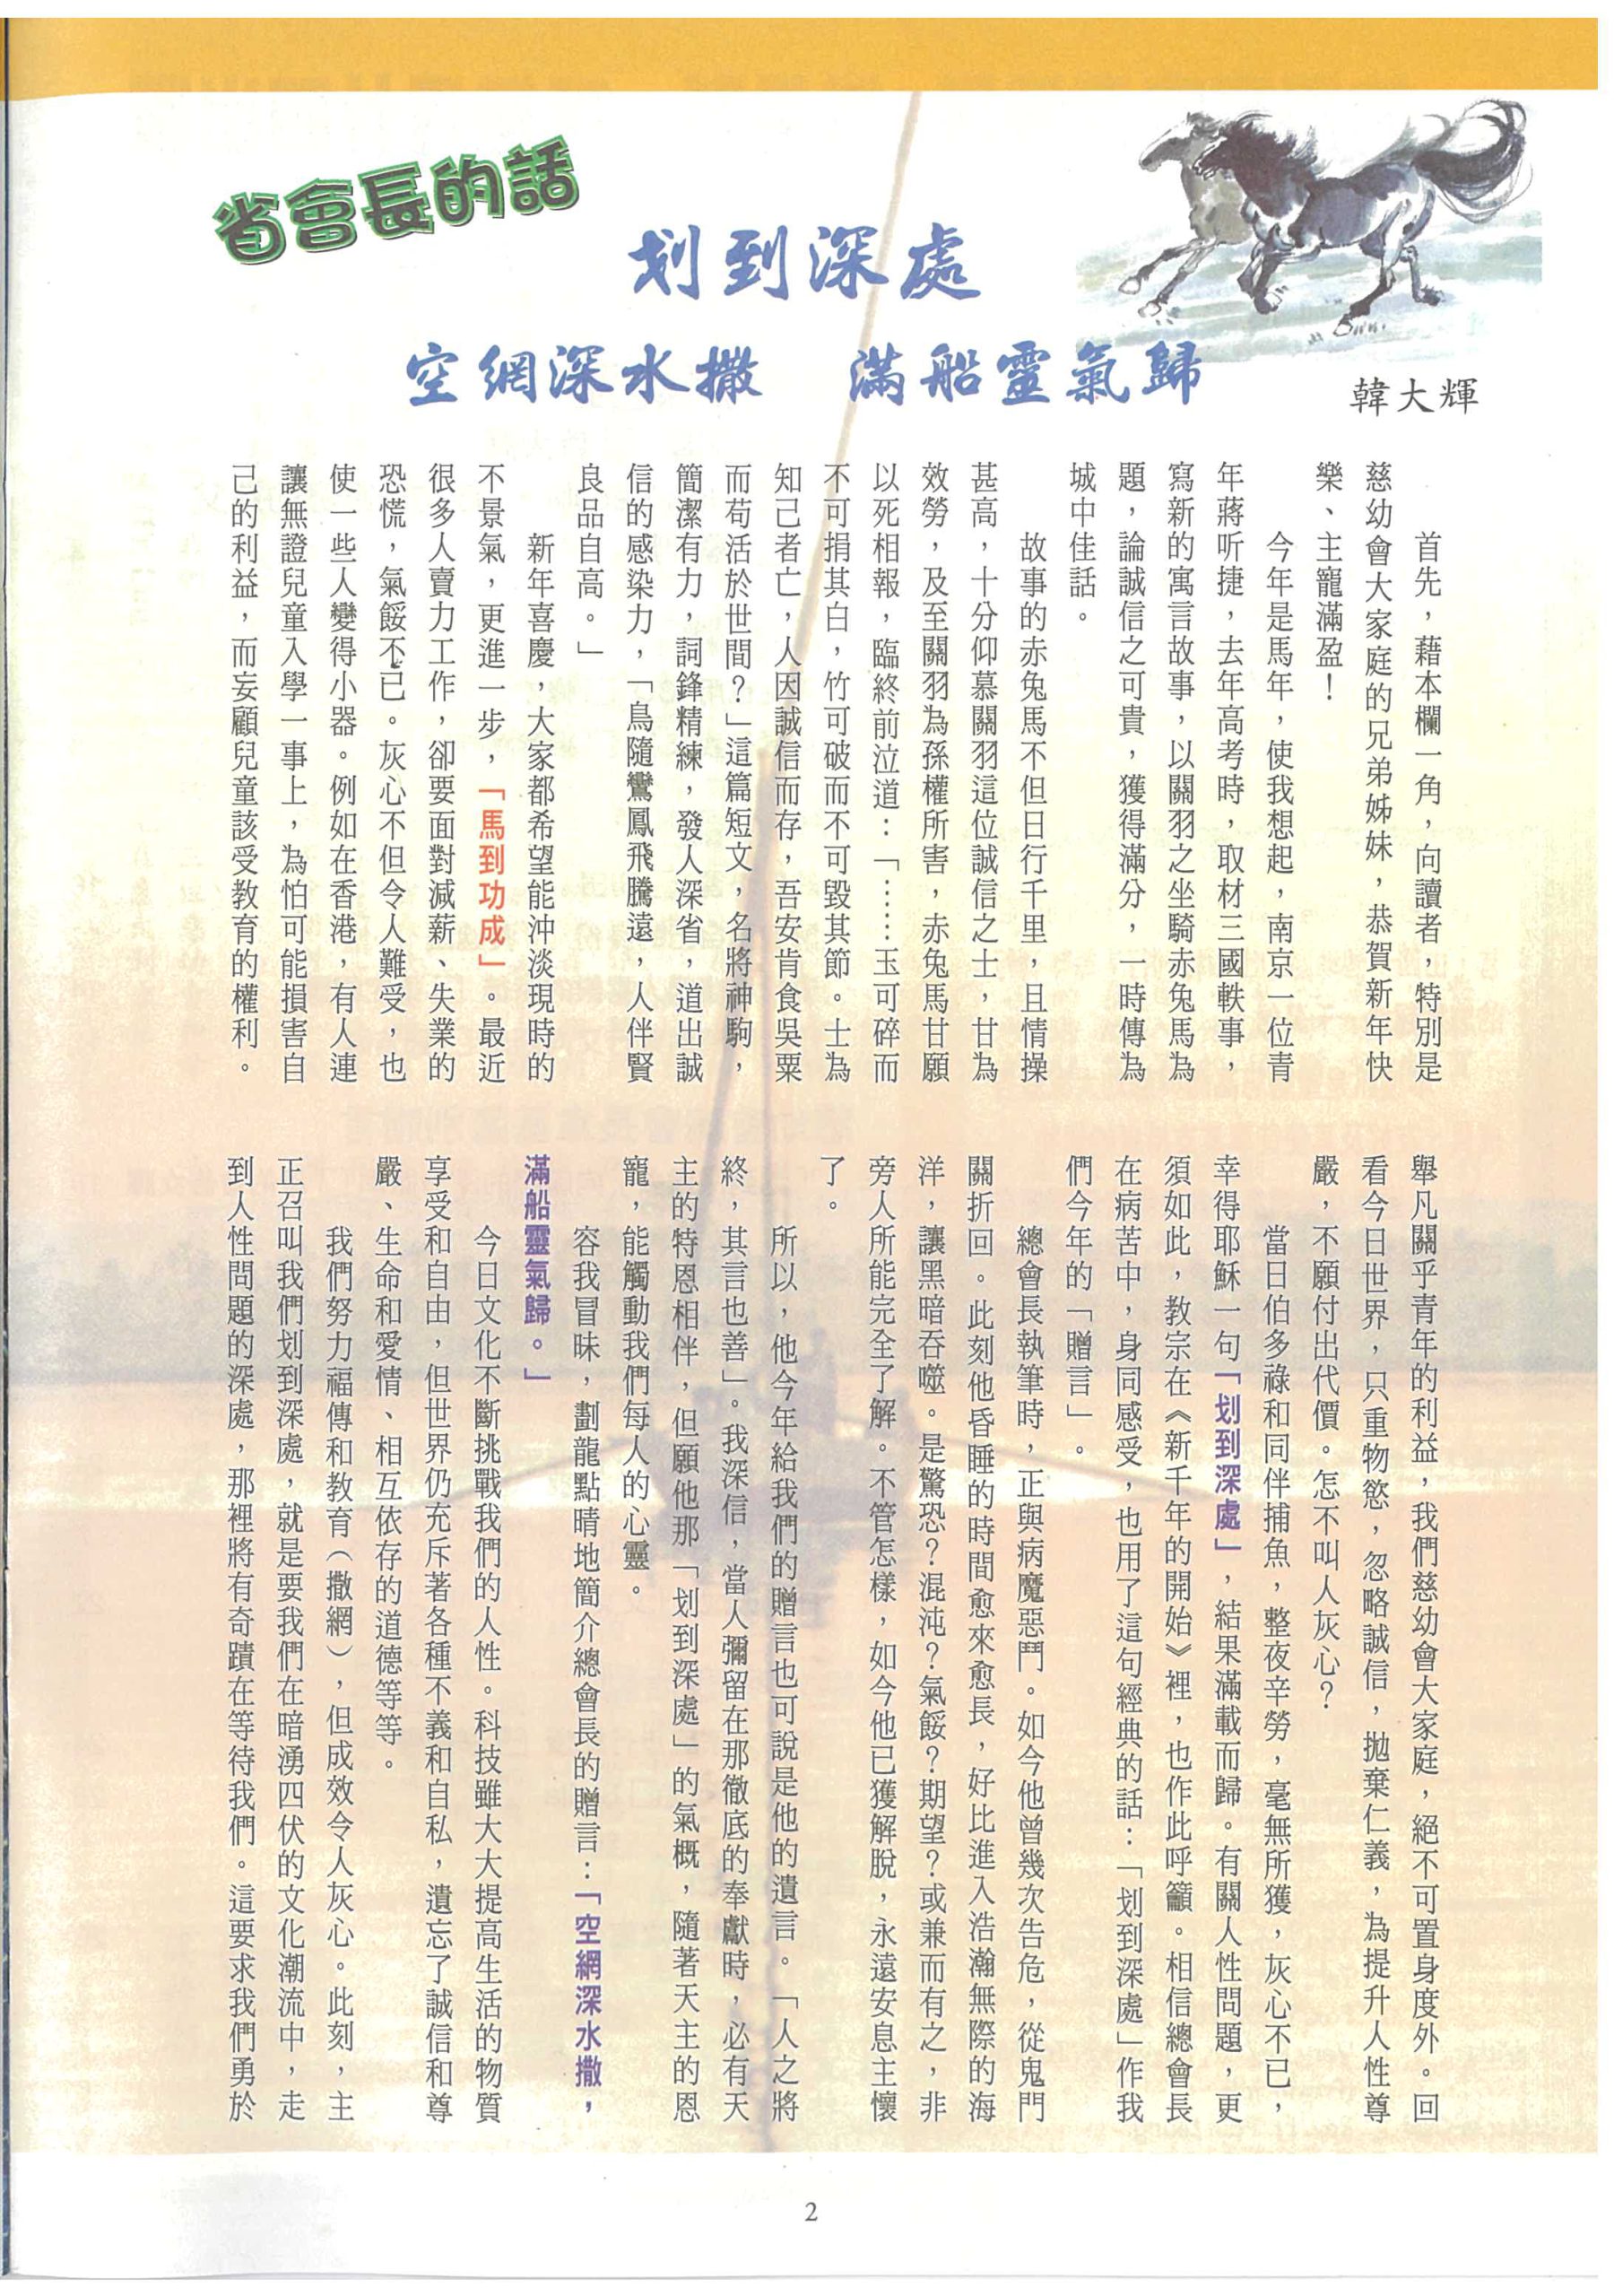 省會長的話
划到深處
空網深水撒　滿船靈氣歸
韓大輝
首先，藉本欄一角，向讀者，特別是
慈幼會大家庭的兄弟姊妹，恭賀新年快
樂、主寵滿盈！
今年是馬年，使我想起，南京一位青
年蔣听捷，去年高考時，取材三國軼事，
寫新的寓言故事，以關羽之坐騎赤兔馬為
題，論誠信之可貴，獲得滿分，一時傳為
城中佳話。
故事的赤兔馬不但日行千里，且情操
甚高，十分仰慕關羽這位誠信之士，甘為
效勞，及至關羽為孫權所害，赤兔馬甘願
以死相報，臨終前泣道：「……玉可碎而
不可損其白，竹可破而不可毀其節。士為
知己者亡，人因誠信而存，吾安肯食吳粟
而苟活於世間？」這篇短文，名將神駒，
簡潔有力，詞鋒精練，發人深省，道出誠
信的感染力，「鳥隨鸞鳳飛騰遠，人伴賢
良品自高。」
新年喜慶，大家都希望能沖淡現時的
不景氣，更進一步，「馬到功成」。最近
很多人賣力工作，卻要面對減薪、失業的
恐慌，氣餒不已。灰心不但令人難受，也
使一些人變得小器。例如在香港，有人連
讓無證兒童入學一事上，為怕可能損害自
己的利益，而妄顧兒童該受教育的權利。
舉凡關乎青年的利益，我們慈幼會大家庭，絕不可置身度外。回
看今日世界，只重物慾，忽略誠信，拋棄仁義，為提升人性尊
嚴，不願付出代價。怎不叫人灰心？
當日伯多祿和同伴捕魚，整夜辛勞，毫無所獲，灰心不已，
幸得耶穌一句「划到深處」，結果滿載而歸。有關人性問題，更
須如此，教宗在《新千年的開始》裡，也作此呼籲。相信總會長
在病苦中，身同感受，也用了這句經典的話：「划到深處」作我
們今年的「贈言」。
總會長執筆時，正與病魔惡鬥。如今他曾幾次告危，從鬼門
關折回。此刻他昏睡的時間愈來愈長，好比進入浩瀚無際的海
洋，讓黑暗吞噬。是驚恐？混沌？氣餒？期望？或兼而有之，非
旁人所能完全了解。不管怎樣，如今他已獲解脫，永遠安息主懷
了。
所以，他今年給我們的贈言也可說是他的遺言。「人之將
終，其言也善」。我深信，當人彌留在那徹底的奉獻時，必有天
主的特恩相伴，但願他那「划到深處」的氣概，隨著天主的恩
寵，能觸動我們每人的心靈。
容我冒昧，劃龍點睛地簡介總會長的贈言：「空網深水撒，
滿船靈氣歸。」
今日文化不斷挑戰我們的人性。科技雖大大提高生活的物質
享受和自由，但世界仍充斥著各種不義和自私，遺忘了誠信和尊
嚴、生命和愛情、相互依存的道德等等。
我們努力福傳和教育（撒網），但成效令人灰心。此刻，主
正召叫我們划到深處，就是要我們在暗湧四伏的文化潮流中，走
到人性問題的深處，那裡將有奇蹟在等待我們。這要求我們勇於
2